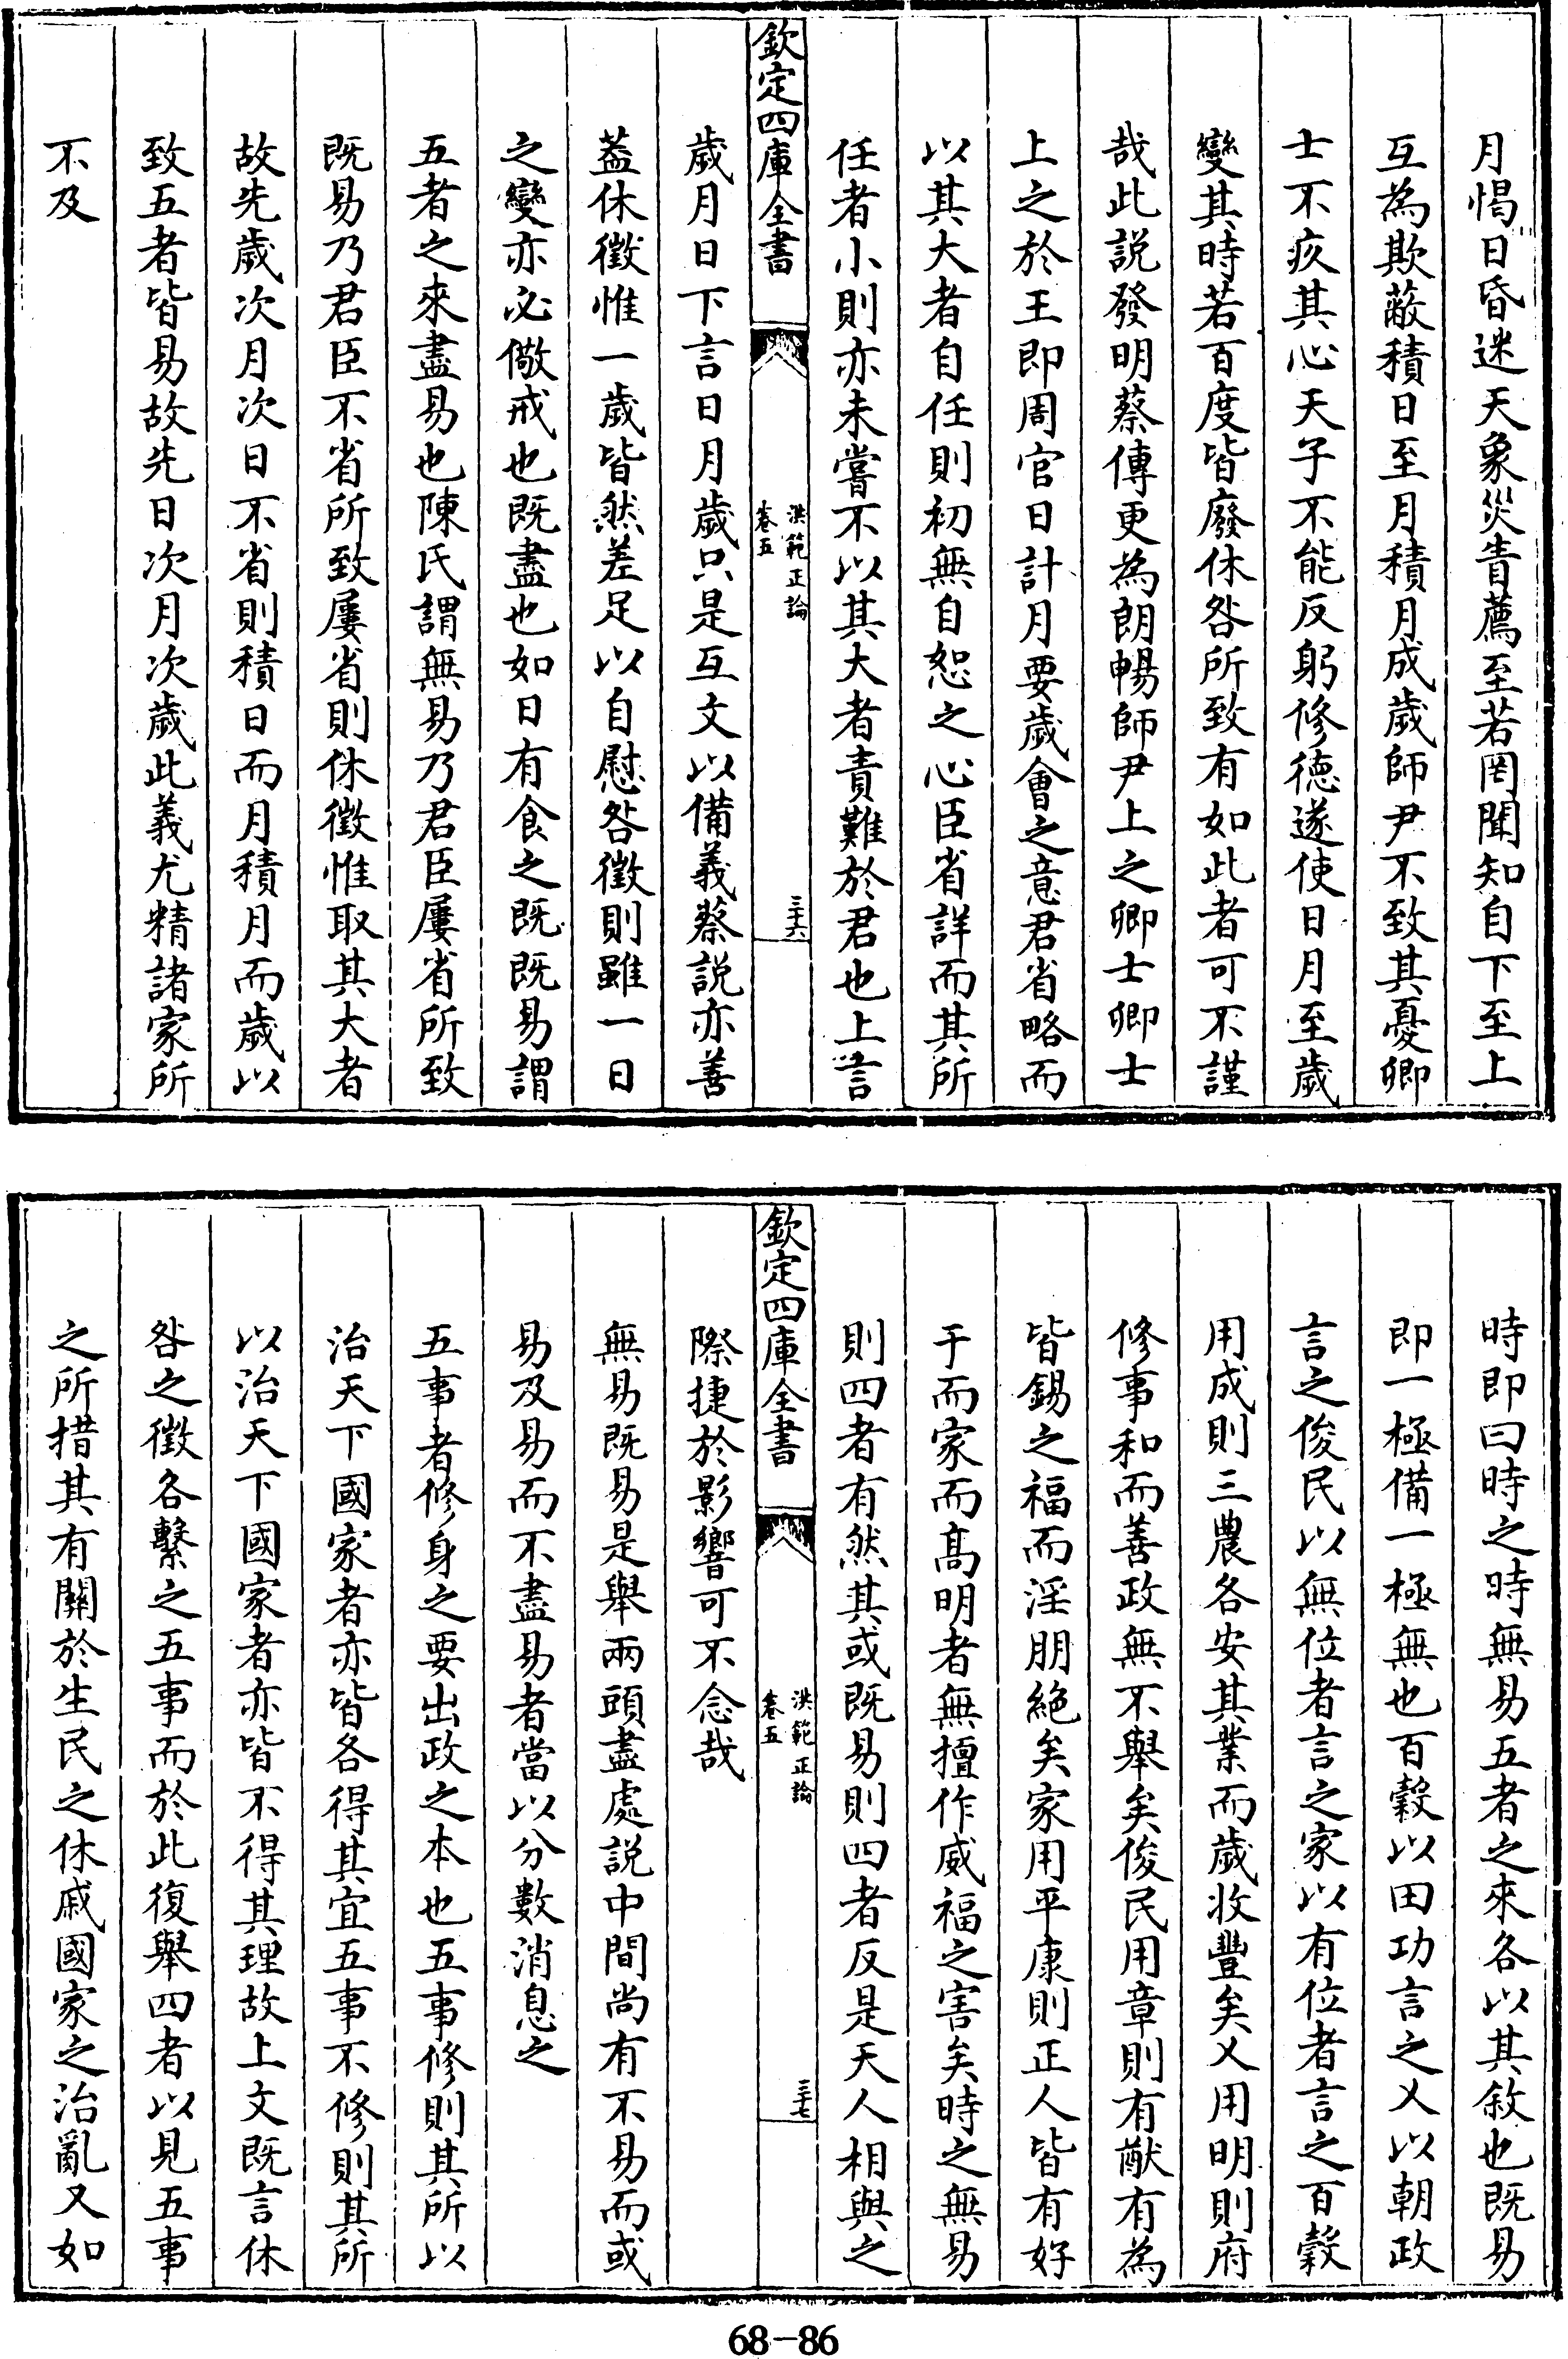 月愒日昏迷天象災眚薦至若罔聞知自下至上
互為欺蔽積日至月積月成歲師尹不致其憂卿
士不疚其心天子不能反躬修德遂使日月至歲
變其時若百度皆廢休咎所致有如此者可不謹
哉此說發明蔡傳更為朗暢師尹上之卿士卿士
上之於王即周官日計月要歲會之意君省略而
以其大者自任則初無自恕之心臣省詳而其所
任者小則亦未嘗不以其大者責難於君也上言
欽定四庫全書
洪範正論
卷五
三十六
歲月日下言日月歲只是互文以備義蔡說亦善
蓋休徵惟一歲皆然差足以自慰咎徵則雖一日
之變亦必儆戒也既盡也如日有食之既既易謂
五者之來盡易也陳氏謂無易乃君臣屢省所致
既易乃君臣不省所致屢省則休徵惟取其大者
故先歲次月次日不省則積日而月積月而歲以
致五者皆易故先日次月次歲此義尤精諸家所
不及
時即曰時之時無易五者之來各以其敘也既易
即一極備一極無也百穀以田功言之乂以朝政
言之俊民以無位者言之家以有位者言之百穀
用成則三農各安其業而歲收豐矣乂用明則府
修事和而善政無不舉矣俊民用章則有猷有為
皆錫之福而淫朋絕矣家用平康則正人皆有好
于而家而高明者無擅作威福之害矣時之無易
則四者有然其或既易則四者反是天人相與之
欽定四庫全書
洪範正論
卷五
三十七
際捷於影響可不念哉
無易既易是舉兩頭盡處說中間尚有不易而或
易及易而不盡易者當以分數消息之
五事者修身之要出政之本也五事修則其所以
治天下國家者亦皆各得其宜五事不修則其所
以治天下國家者亦皆不得其理故上文既言休
咎之徵各繫之五事而於此復舉四者以見五事
之所措其有關於生民之休戚國家之治亂又如
68-86